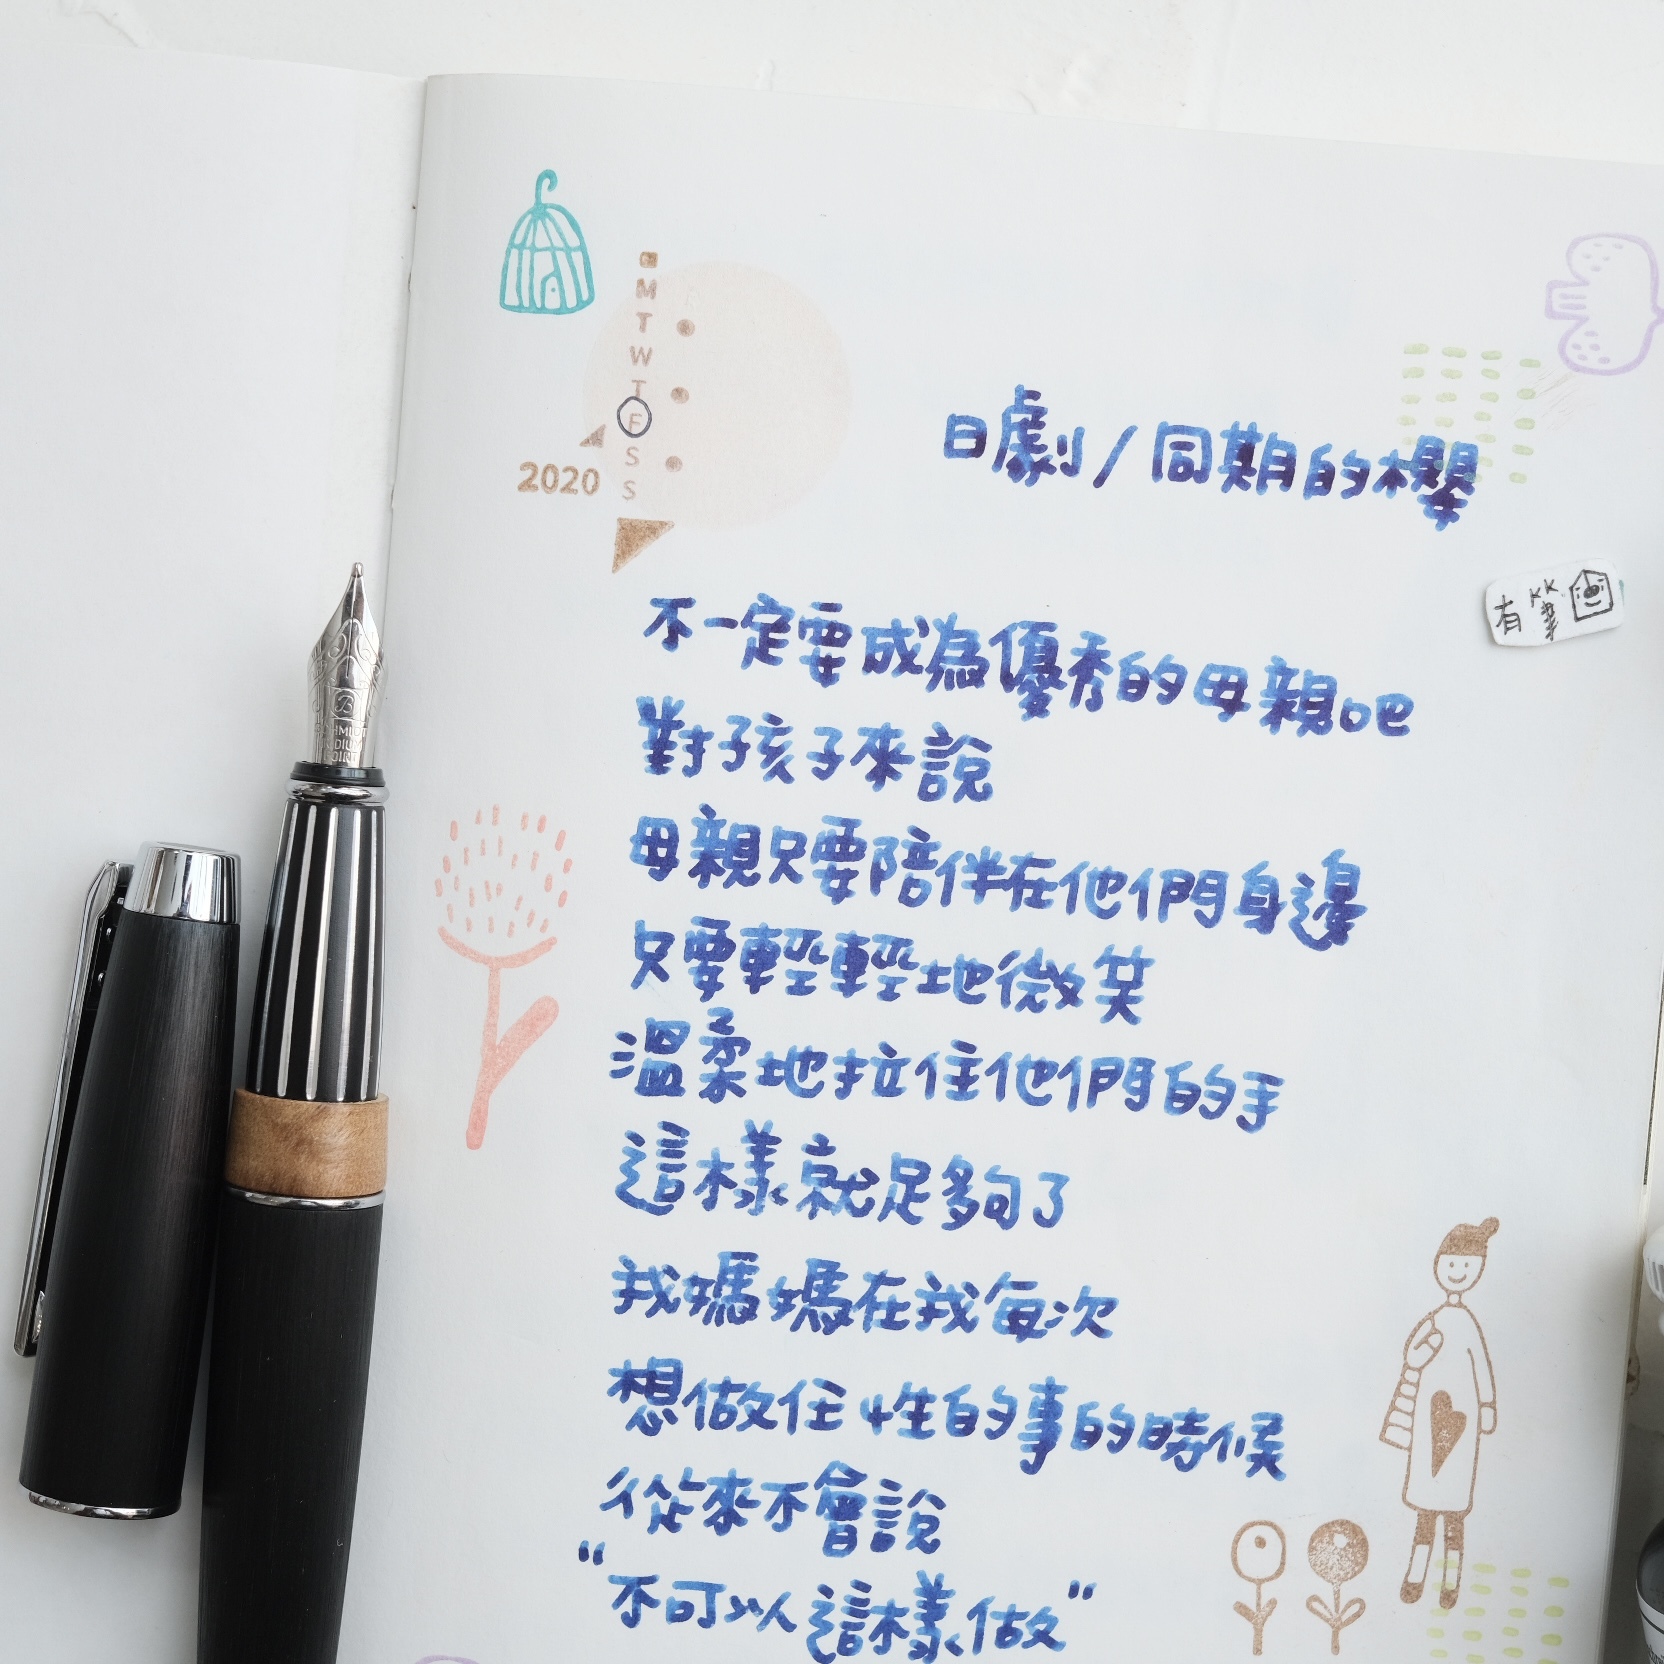 M
T
W
T
F
S
S
2020
日劇/同期的櫻
有KK筆
不一定要成為優秀的母親吧
對孩子來說
母親只要陪伴在他們身邊
只要輕輕地微笑
溫柔地拉住他們的手
這樣就足夠了
我媽媽在我每次
想做任性的事的時候
從來不會說
"不可以這樣做"
B
SCHMIDT
IRIDIUM
POINT